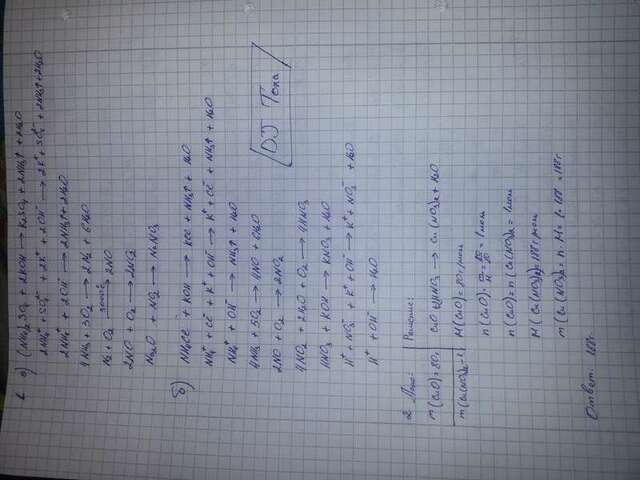 1. а) (NH₄)₂SO₄ + 2KOH → K₂SO₄ + 2NH₃↑ + 2H₂O
2NH₄⁺ + SO₄²⁻ + 2K⁺ + 2OH⁻ → 2K⁺ + SO₄²⁻ + 2NH₃↑ + 2H₂O
2NH₄⁺ + 2OH⁻ → 2NH₃↑ + 2H₂O
4NH₃ + 3O₂ → 2N₂ + 6H₂O
N₂ + O₂ → 2NO
2NO + O₂ → 2NO₂
б) NH₄Cl + KOH → KCl + NH₃↑ + H₂O
NH₄⁺ + Cl⁻ + K⁺ + OH⁻ → K⁺ + Cl⁻ + NH₃↑ + H₂O
NH₄⁺ + OH⁻ → NH₃↑ + H₂O
4NH₃ + 5O₂ → 4NO + 6H₂O
2NO + O₂ → 2NO₂
4NO₂ + 2H₂O + O₂ → 4HNO₃
HNO₃ + KOH → KNO₃ + H₂O
H⁺ + NO₃⁻ + K⁺ + OH⁻ → K⁺ + NO₃⁻ + H₂O
H⁺ + OH⁻ → H₂O
DJ Тоха
2. Дано:
m(CuO) = 80г
m(Cu(NO₃)₂ - ?
Решение:
CuO + 2HNO₃ → Cu(NO₃)₂ + H₂O
M(CuO) = 80 г/моль
n(CuO) = = 1 моль
n(CuO) = n(Cu(NO₃)₂ = 1 моль
M(Cu(NO₃)₂) = 188 г/моль
m(Cu(NO₃)₂ = n · M = 1 · 188 = 188г.
Ответ: 188г.